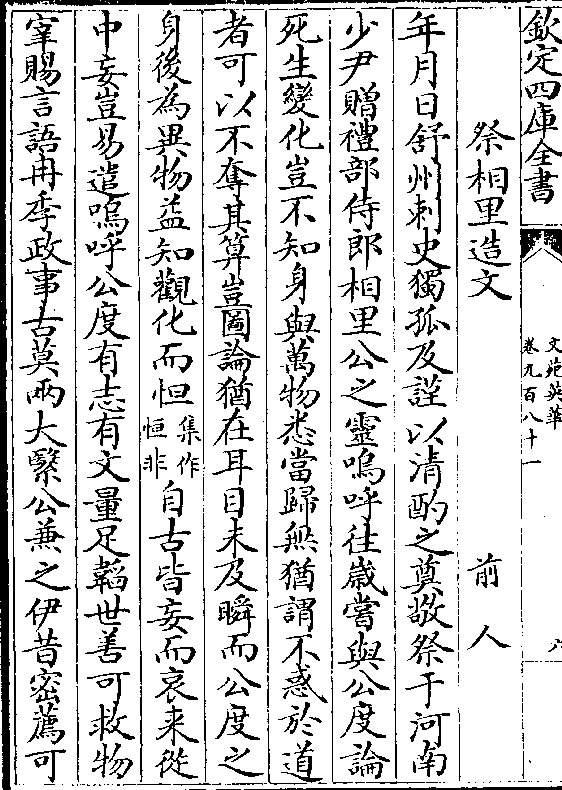 欽定四庫全書
文苑英華
卷九百八十一
六
祭相里造文　前人
年月日舒州刺史獨孤及謹以清酌之奠敬祭于河南
少尹贈禮部侍郎相里公之靈嗚呼往歲嘗與公度論
死生變化豈不知身與萬物悉當歸無猶謂不惑於道
者可以不奪其算豈圖論猶在耳目未及瞬而公度之
身後為異物益知觀化而怛集作恒非自古皆妄而哀来從
中妄豈易遣嗚呼公度有志有文量足韜世善可救物
宰賜言語冉季政事古莫兩大繄公兼之伊昔密薦可